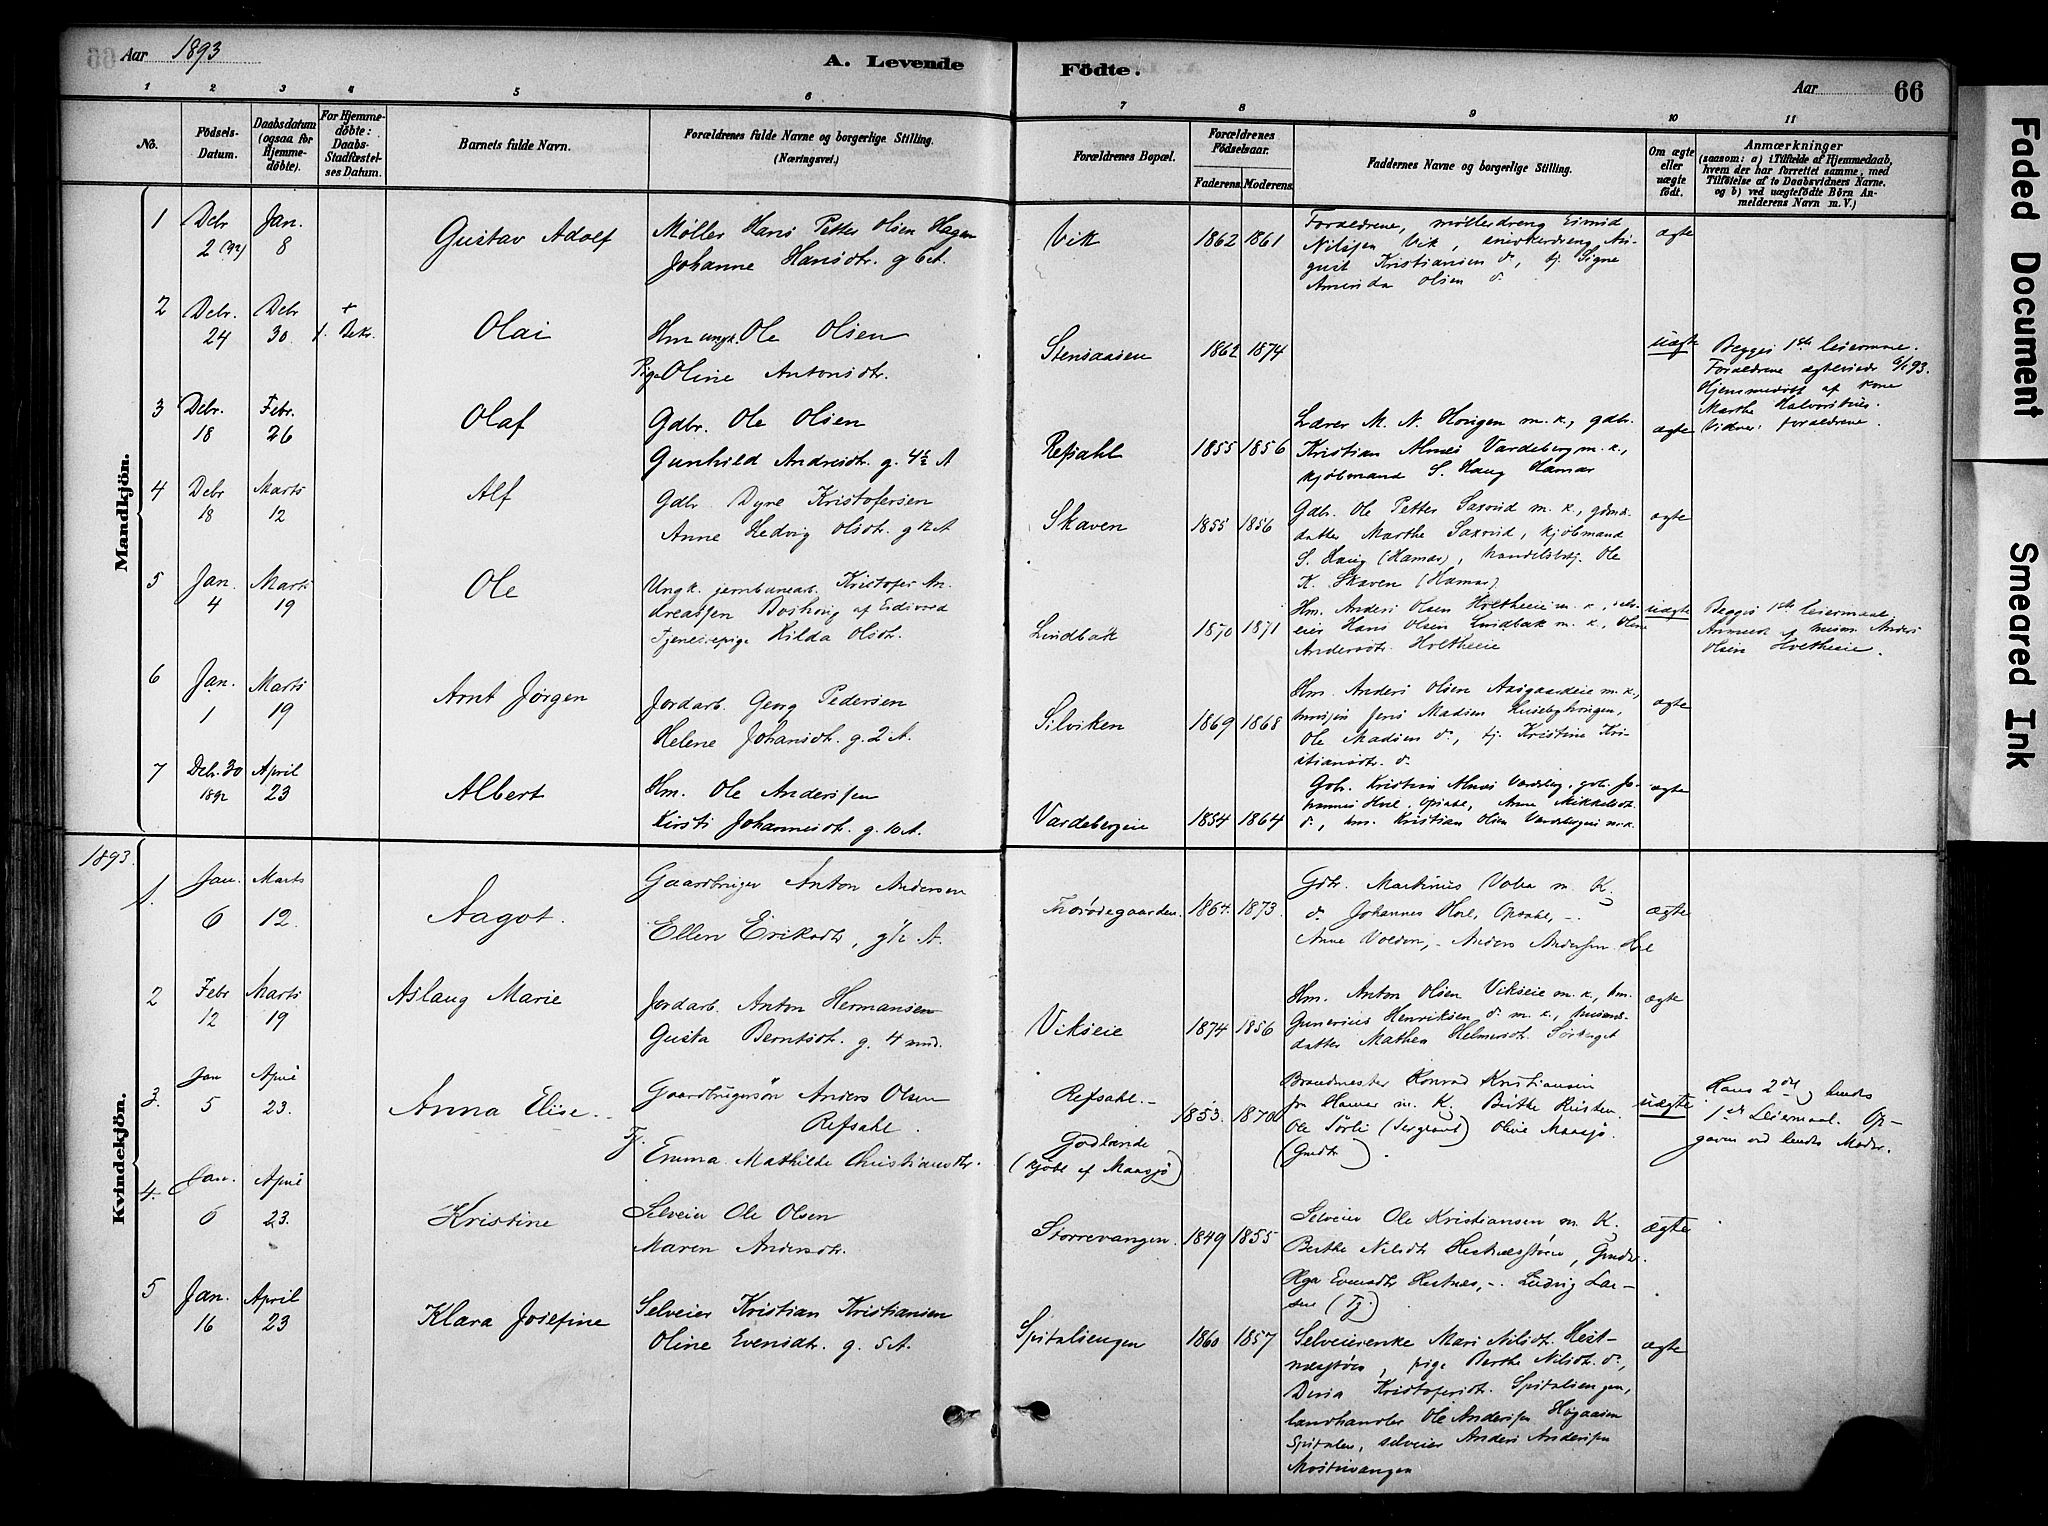 Aar 1893
A. Levende
Födte.
Aar
66
1 2 3 4 5 6 7 8 9 10 11
No.
Födsels-Datum.
Daabsdatum (ogsaa for Hjemmedöbte).
For Hjemmedöbte: Daabs-Stadfæstelses Datum.
Barnets fulde Navn.
Forældrenes fulde Navne og borgerlige Stilling. (Næringsvei.)
Forældrenes Bopæl.
Forældrenes Födselsaar.
Faderens. Moderens.
Faddernes Navne og borgerlige Stilling.
Om ægte eller uægte födt.
Anmærkninger
(saasom: a) i Tilfælde af Hjemmedaab,
hvem der har forrettet samme, med
Tilföielse af to Daabsvidners Navne.
og b) ved uægtefödte Börn Anmelderens Navn m. V.)
Mandkjön.
1 Debr 2 (92) Jan. 8 Gustav Adolf
Møller Hans Petter Olsen Hagen
Johanne Hansdtr. g 6 A.
Vik 1862 1861
Forældrene, møllerdreng
Nilsen Vik, snedkerdreng Au-
gust Kristiansen do, tj. Signe
Olsen do
ægte
2 Debr. 24 Debr 30 + f. Bekr. Olai
Hm ungk. Ole Olsen
Pige Oline Antonsdtr.
Stensaasen 1862 1874
uægte
Begges 1ste leiermaal.
Forældrene 6/1 93.
Hjemmedöbt af kone
Marthe
Vidner: forældrene.
3 Debr. 18 Febr. 26 Olaf
Gdbr. Ole Olsen
Gunhild Andreasdtr. g. 4½ A
Refsahl 1855 1856
Lærer M. N. Hougen m. k., gdbr.
Kristian Alnæs Vardeberg m. k.,
kjøbmand S. Haug Hamar
ægte
4 Debr 18 Marts 12 Alf
Gdbr. Dyre Kristofersen
Anne Hedvig Olsdtr. g 12 A
Skaven 1855 1856
Gdbr. Ole Petter Saxrud m. k., gdmd.
datter Marthe Saxrud, kjøbmand
S. Haug (Hamar), handelsbtj. Ole
K. Skaven (Hamar)
ægte
5 Jan. 4 Marts 19 Ole
Ungk. jernbanearb. Kristofer An-
dreassen af Eidsvold
Tjenestepige Hilda Olsdtr.
Lindbæk 1870 1871
Hm. Anders Olsen Holtheeie m. k., selv-
eier Hans Olsen Lindbæk m. k., Oline
Andersdtr. Holtheeie
uægte
Begges 1ste leiermaal
Anmeldt af husm. Anders
Olsen Holtheeie.
6 Jan. 1 Marts 19 Arnt Jørgen
Jordarb. Georg Pedersen
Helene Johansdtr. g. 2 A.
Silviken 1869 1868
Hm. Anders Olsen Aasgaardeie m. k.,
Jens Madsen Husebyhougen,
Ole Madsen do, tj. Kristine Kri-
stiansdtr. do
ægte
7 Debr. 30 1892 April 23 Albert
Hm. Ole Anderssen
Kirsti Johannesdtr. g. 10 A.
Vardebergeie 1854 1864
Gdbr. Kristian Alnæs Vardeberg, gdb. Jo-
hannes Hoel, Opsahl, Anne Mikkelsdtr.
do, hm. Kristian Olsen Vardebergeie m. k.
ægte
1893.
Kvindekjön.
1. Jan. 6 Marts 12. Aagot.
Gaardbruger Anton Andersen
Ellen Eriksdtr, g ½ A.
1864. 1873.
Gdbr. Martinus Volden m. K.
do. Johannes Hoel, Opsahl, -.
Anne Volden, - Anders Andersen Hoel
ægte
2 Febr 12 Marts 19 Aslaug Marie
Jordarb. Anton Hermansen
Gusta Berntsdtr. g. 4 mnd.
Vikseie 1874 1856
Hm. Anton Olsen Vikseie m. k., hm.
Gunerius Henriksen do m. k., husmds.
datter Mathea Helmersdtr. Sørberget
ægte
3. Jan 5 April 23. Anna Elise.
Gaardbrugersøn Anders Olsen
Refsahl.
Tj. Emma Mathilde Christiansdtr.
Refsahl. -
Godlænde
(kjøbt af Maasjø)
1853. 1870
Brandmester Konrad Kristiansen
fra Hamar m. K. Birthe
Ole Sørli (Sergeant) Oline Maasjø.
(Gmdtr).
uægte
Hans 2det, hendes
1ste Leiermaal. Op-
gaven ved hendes Moder.
4. Jan. 6 April 23. Kristine
Selveier Ole Olsen
Maren Andersdtr.
Storrevangen. 1849 1855
Selveier Ole Kristiansen m. K.
Berthe Nilsdtr Hestnesstøen, Gmdtr.
Olga Evensdtr Hestnes, -. Ludvig Lar-
sen (Tj.)
ægte
5 Jan. 16 April 23 Klara Josefine
Selveier Kristian Kristiansen
Oline Evensdtr. g. 5 A.
Spitalsengen 1860 1857
Selveierenke Mari Nilsdtr. Hest-
næsstøen, pige Berthe Nilsdtr. do,
Dina Kristofersdtr. Spitalsengen,
landhandler Ole Anderssen Høgaasen
Spitalen, selveier Anders Anderssen
ægte
Faded Document
Smeared Ink